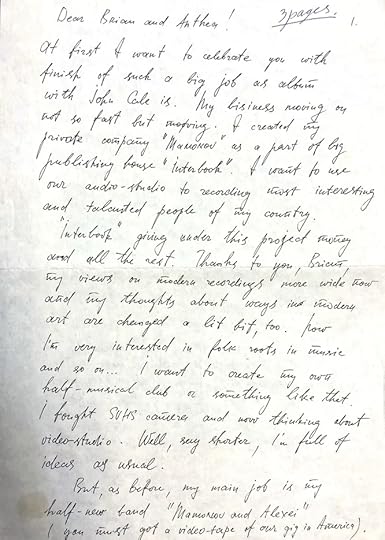 Dear Brian and Anthea!
3 pages.
1.
At first I want to celebrate you with
finish of such a big job as album
with John Cale is. My bisiness moving on
not so fast but moving. I created my
private company "Mamonov" as a part of big
publishing house "Interbook". I want to use
our audio-studio to recording most interesting
and talented people of my country.
"Interbook" giving under this project money
and all the rest. Thanks to you, Brian,
my views on modern recordings more wide now
and my thoughts about ways in modern
art are changed a lit bit too. Now
I'm very interested in folk roots in music
and so on... I want to create my own
half-musical club or something like that.
I bought SVHS camera and now thinking about
video-studio. Well, say shorter, I'm full of
ideas as usual.
But, as before, my main job is my
half-new band "Mamonov and Alexei"
(you must got a video-tape of our gig in America).